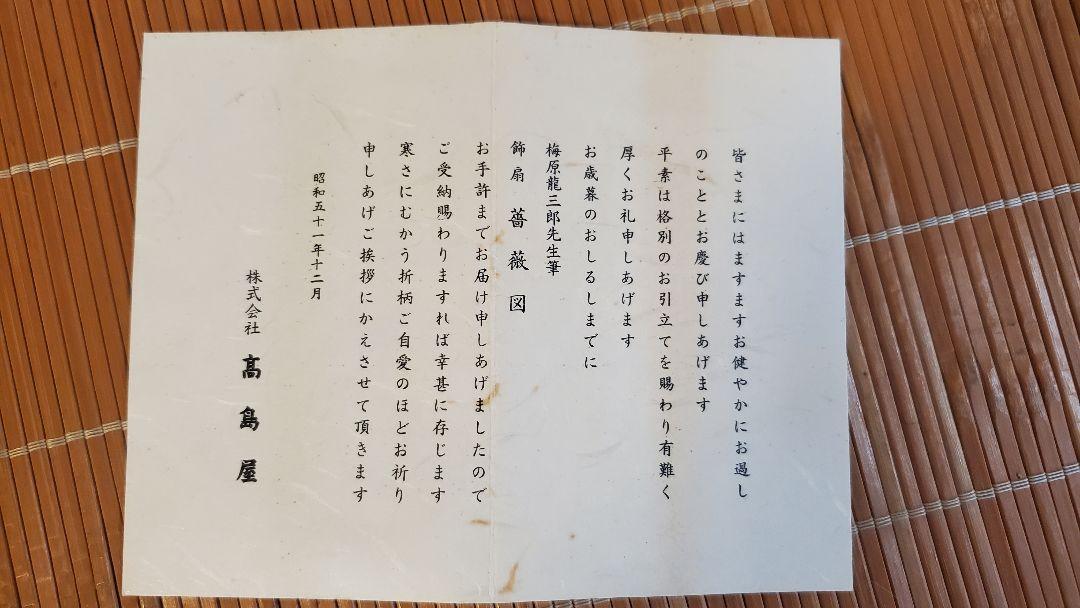 皆さまにはますますお健やかにお過し
のこととお慶び申しあげます
平素は格別のお引立てを賜わり有難く
厚くお礼申しあげます
お歳暮のおしるしまでに
梅原龍三郎先生筆
飾扇 薔薇図
お手許までお届け申しあげましたので
ご受納賜わりますれば幸甚に存じます
寒さにむかう折柄ご自愛のほどお祈り
申しあげご挨拶にかえさせて頂きます
昭和五十一年十二月
株式会社 髙島屋